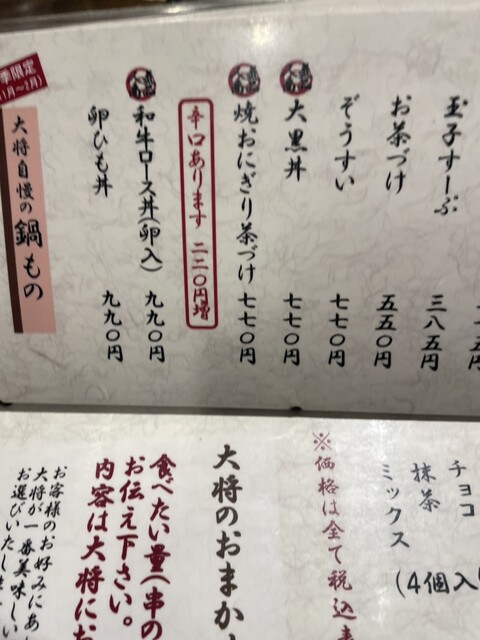 玉子すーぷ
三八五円
お茶づけ
五五〇円
ぞうすい
七七〇円
大黒丼
七七〇円
焼おにぎり茶づけ
七七〇円
辛口あります 二二〇円増
和牛ロース丼(卵入)
九九〇円
卵ひも丼
九九〇円
季限定
大将自慢の鍋もの
チョコ
抹茶
ミックス
(4個入
※価格は全て税込
大将のおまか
食べたい量(串の
お伝え下さい。
内容は大将に
お客様のお好みにあ
大将が一番美味しい
お選びいたし